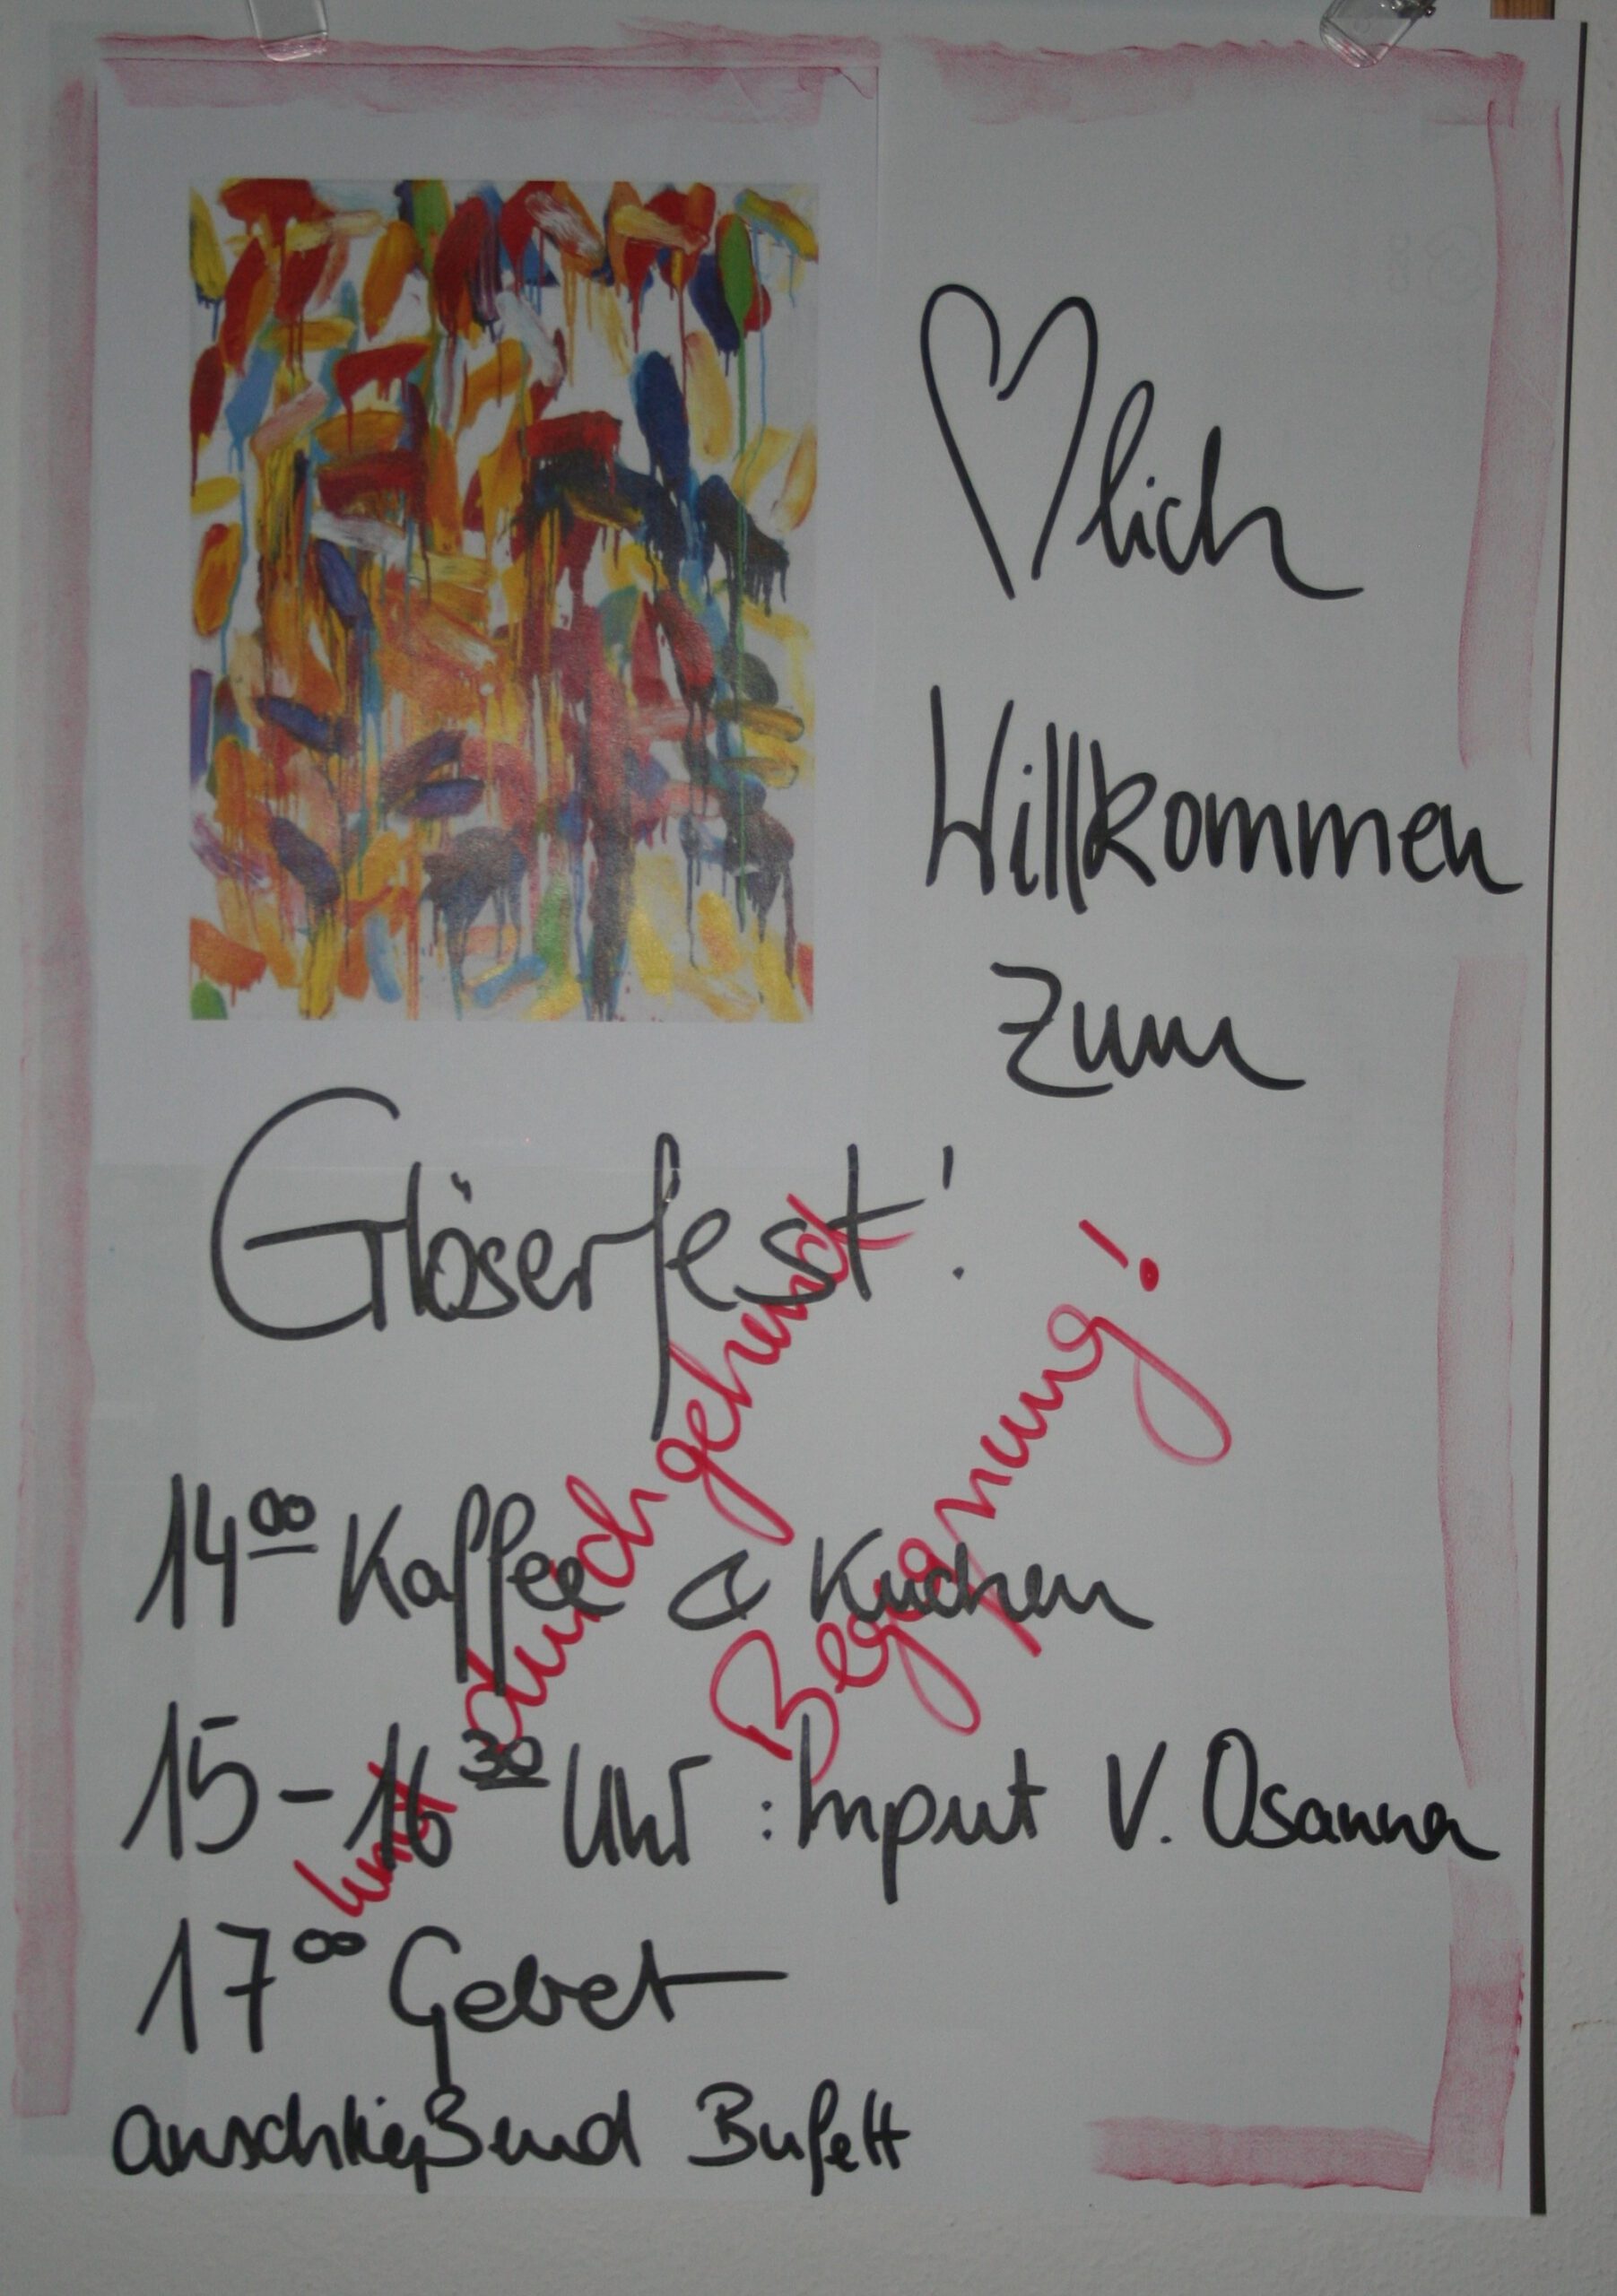 ♡lich
Willkommen
zum
Glöserfest!
14⁰⁰ Kaffee & Kuchen
15-16³⁰ Uhr: Input V. Osanna
17⁰⁰ Gebet
anschließend Bufett
und durchgehend
Begegnung!